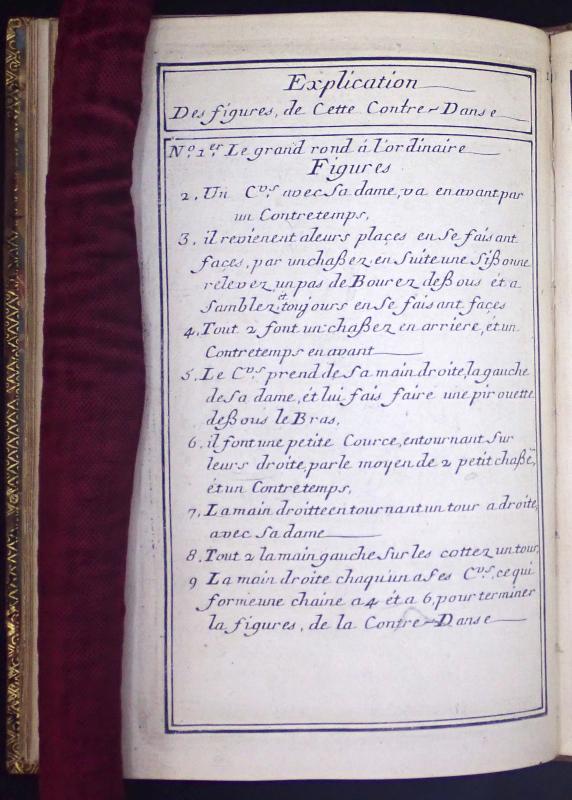 Explication
Des figures, de Cette Contre-Danse
N.º 1.er Le grand rond á l'ordinaire
Figures
2. Un C.vs avec Sa dame, va en avant par
un Contretemps,
3. il revienent aleurs plaçes en Se faisant
façes, par un chaßez, en Suite une Sißonne
relevez un pas de Bourez deßous ét a
Samblez et toujours en Se faisant façes
4. Tout 2 font un chaßez en arriere, ét un
Contretemps en avant
5. Le C.vs prend de Sa main droite, la gauche
de Sa dame, ét lui fais faire une pirouette
deßous le Bras,
6. il font une petite Cource, entournant Sur
leurs droite, par le moyen de 2 petit chaßéz
ét un Contretemps,
7. La main droitte en tournant un tour a droite,
avec Sa dame
8. Tout 2 la main gauche Sur les cottez un tour,
9 La main droite chaqu'un a Ses C.vs, ce qui
forme une chaine a 4 ét a 6, pour terminer
la figures, de la Contre-Danse